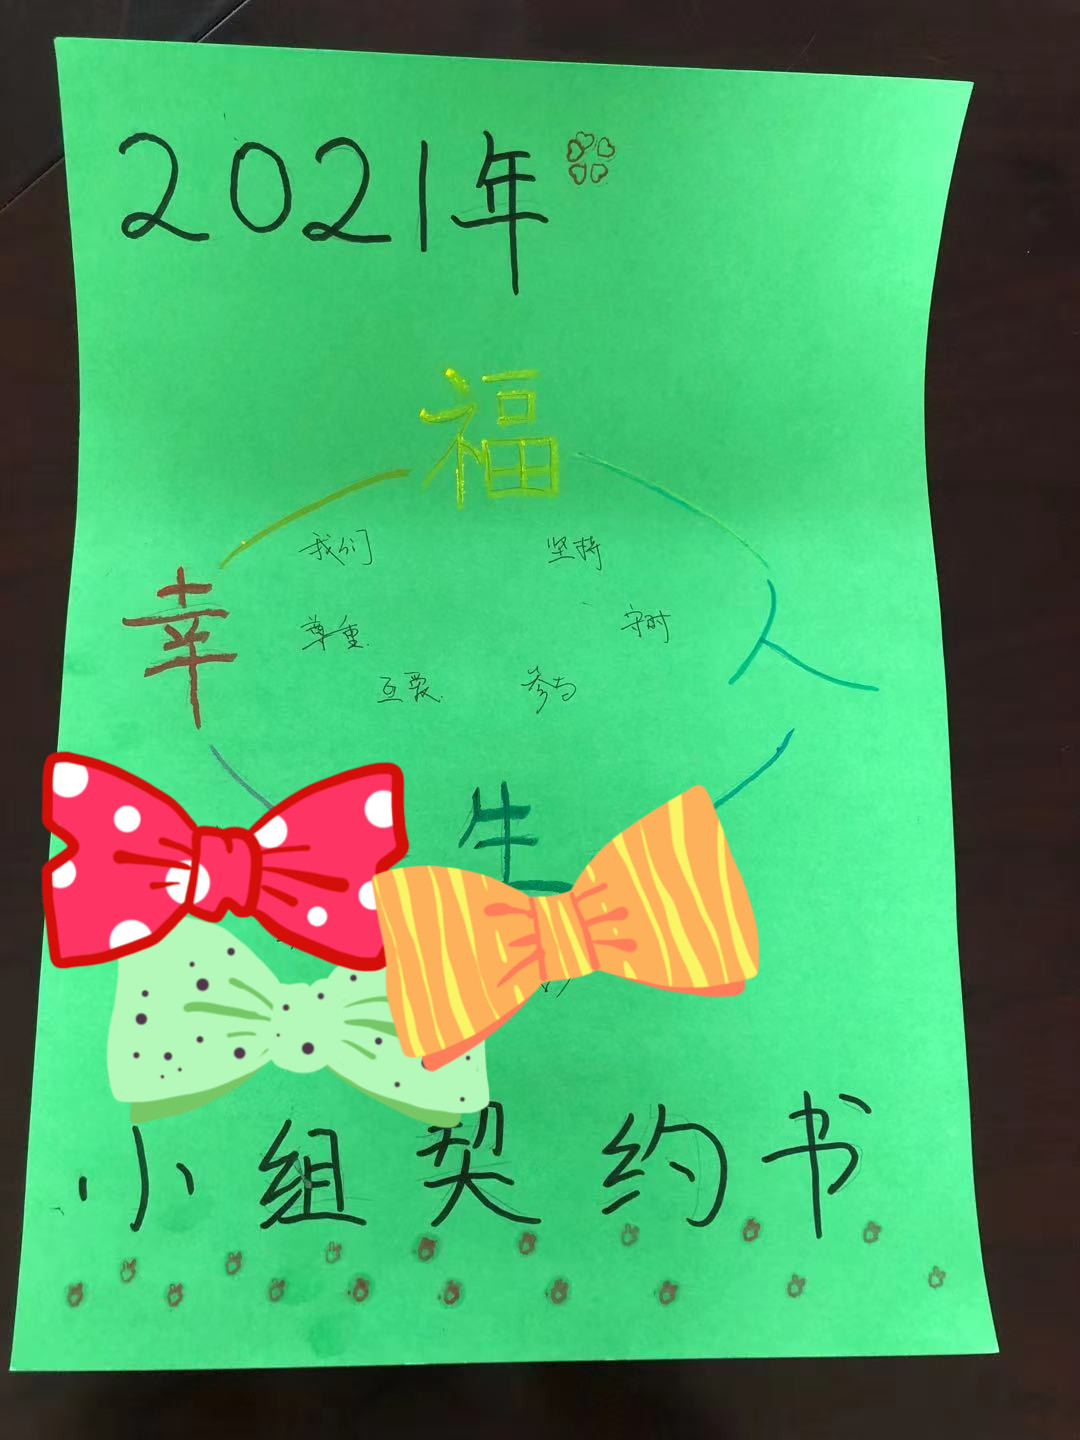 2021年
福
我们 坚持
幸 人
尊重 守时
互爱 参与
生
小组契约书